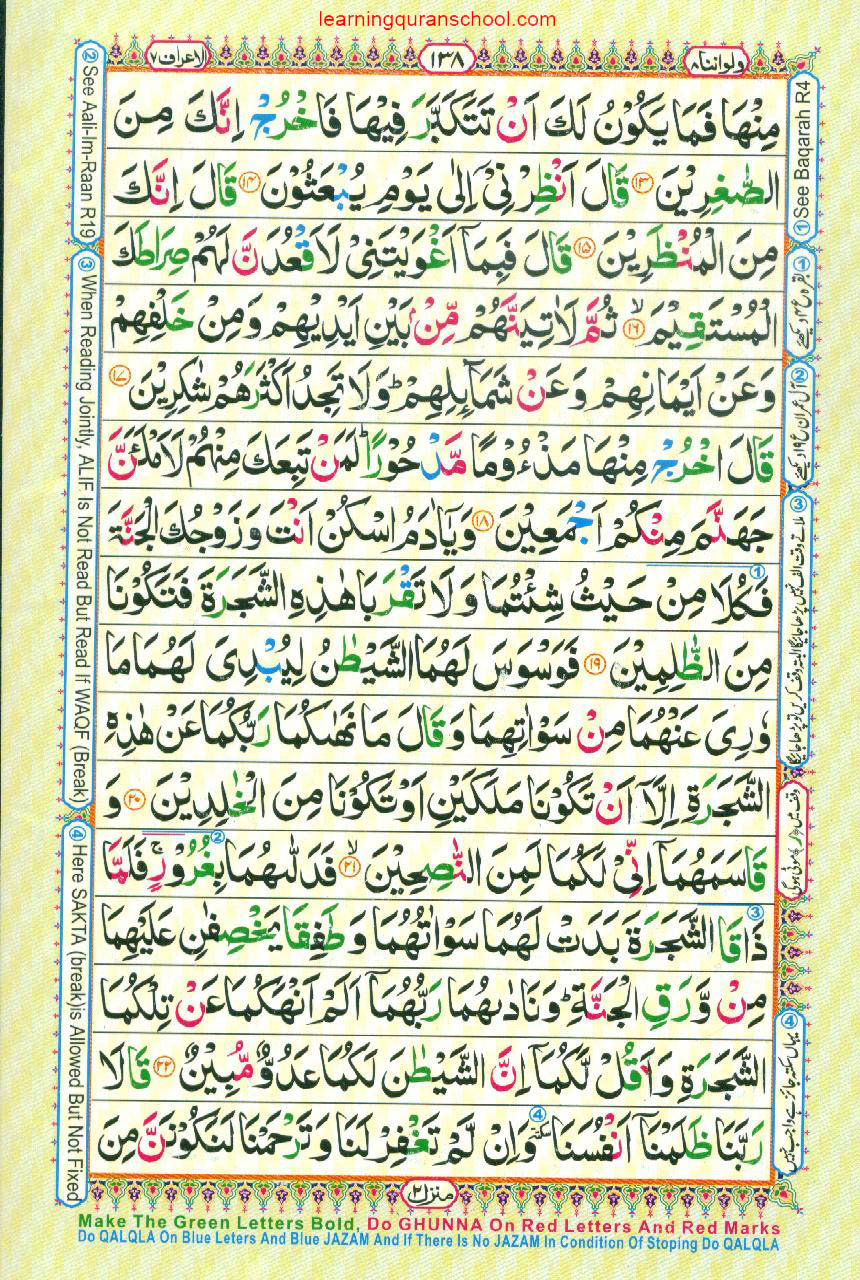 learningquranschool.com
ولواننا ٨
١٣٨
الاعراف ٧
مِنْهَا فَمَا يَكُوْنُ لَكَ اَنْ تَتَكَبَّرَ فِيْهَا فَاخْرُجْ اِنَّكَ مِنَ
الصّٰغِرِيْنَ ١٣ قَالَ اَنْظِرْنِيْۤ اِلٰى يَوْمِ يُبْعَثُوْنَ ١٤ قَالَ اِنَّكَ
مِنَ الْمُنْظَرِيْنَ ١٥ قَالَ فَبِمَاۤ اَغْوَيْتَنِيْ لَاَقْعُدَنَّ لَهُمْ صِرَاطَكَ
الْمُسْتَقِيْمَ ۙ١٦ ثُمَّ لَاٰتِيَنَّهُمْ مِّنْۢ بَيْنِ اَيْدِيْهِمْ وَمِنْ خَلْفِهِمْ
وَعَنْ اَيْمَانِهِمْ وَعَنْ شَمَآئِلِهِمْ ؕ وَلَا تَجِدُ اَكْثَرَهُمْ شٰكِرِيْنَ ١٧
قَالَ اخْرُجْ مِنْهَا مَذْءُوْمًا مَّدْحُوْرًا ؕ لَمَنْ تَبِعَكَ مِنْهُمْ لَاَمْلَئَنَّ
جَهَنَّمَ مِنْكُمْ اَجْمَعِيْنَ ١٨ وَيٰۤاٰدَمُ اسْكُنْ اَنْتَ وَزَوْجُكَ الْجَنَّةَ
فَكُلَا مِنْ حَيْثُ شِئْتُمَا وَلَا تَقْرَبَا هٰذِهِ الشَّجَرَةَ فَتَكُوْنَا
مِنَ الظّٰلِمِيْنَ ١٩ فَوَسْوَسَ لَهُمَا الشَّيْطٰنُ لِيُبْدِيَ لَهُمَا مَا
وٗرِيَ عَنْهُمَا مِنْ سَوْاٰتِهِمَا وَقَالَ مَا نَهٰىكُمَا رَبُّكُمَا عَنْ هٰذِهِ
الشَّجَرَةِ اِلَّاۤ اَنْ تَكُوْنَا مَلَكَيْنِ اَوْ تَكُوْنَا مِنَ الْخٰلِدِيْنَ ٢٠ وَ
قَاسَمَهُمَاۤ اِنِّيْ لَكُمَا لَمِنَ النّٰصِحِيْنَ ۙ٢١ فَدَلّٰىهُمَا بِغُرُوْرٍ ۚ فَلَمَّا
ذَاقَا الشَّجَرَةَ بَدَتْ لَهُمَا سَوْاٰتُهُمَا وَطَفِقَا يَخْصِفٰنِ عَلَيْهِمَا
مِنْ وَّرَقِ الْجَنَّةِ ؕ وَنَادٰىهُمَا رَبُّهُمَاۤ اَلَمْ اَنْهَكُمَا عَنْ تِلْكُمَا
الشَّجَرَةِ وَاَقُلْ لَّكُمَاۤ اِنَّ الشَّيْطٰنَ لَكُمَا عَدُوٌّ مُّبِيْنٌ ٢٢ قَالَا
رَبَّنَا ظَلَمْنَاۤ اَنْفُسَنَا سكتة وَاِنْ لَّمْ تَغْفِرْ لَنَا وَتَرْحَمْنَا لَنَكُوْنَنَّ مِنَ
منزل ٢
① See Baqarah R4
② See Aali-Im-Raan R19
③ When Reading Jointly, ALIF Is Not Read But Read If WAQF (Break)
④ Here SAKTA (break)is Allowed But Not Fixed
Make The Green Letters Bold, Do GHUNNA On Red Letters And Red Marks
Do QALQLA On Blue Leters And Blue JAZAM And If There Is No JAZAM In Condition Of Stoping Do QALQLA